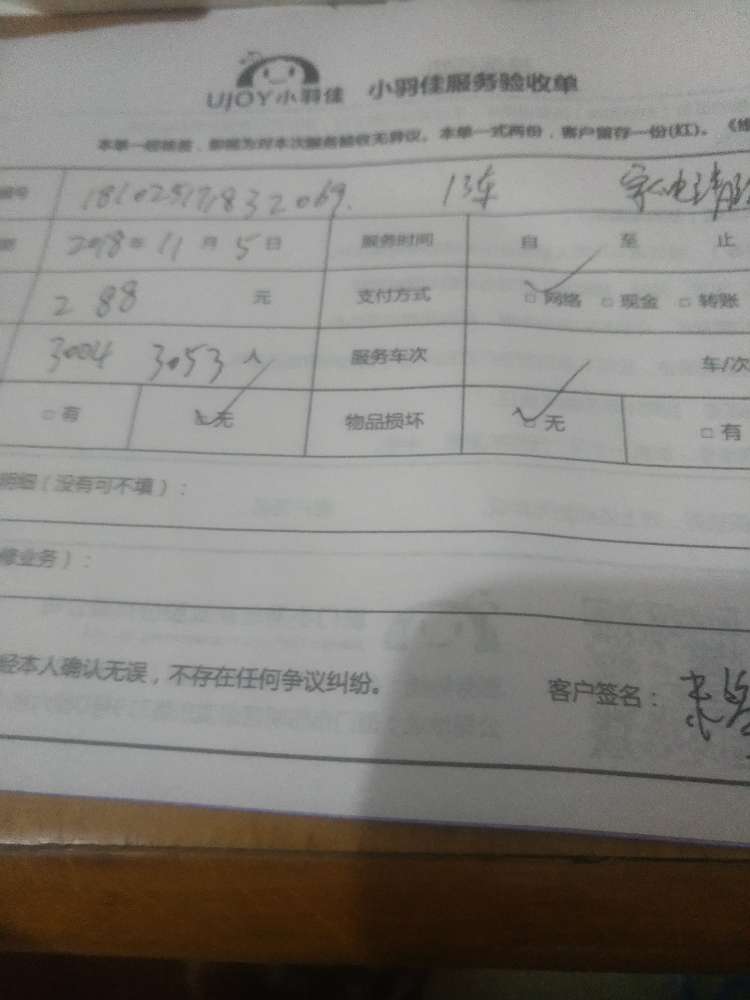 UJOY小羽佳 小羽佳服务验收单
本单一经签名，即视为对本次服务验收无异议。本单一式两份，客户留存一份(红)。
编号 181025171832069. 13车
2018年 11 月 5 日 服务时间 自 至 止
288 元 支付方式 □网络 □现金 □转账
3004 3053 人 服务车次 车/次
□有 □无 物品损坏 □无 □有
明细（没有可不填）：
修业务）：
经本人确认无误，不存在任何争议纠纷。 客户签名：